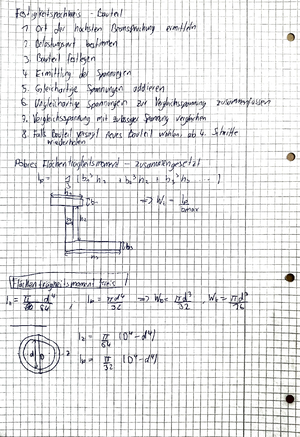 Festigkeitsnachweis - Bauteil
1. Ort der höchsten Beanspruchung ermitteln
2. Belastungsart bestimmen
3. Bauteil festlegen
4. Ermittlung der Spannungen
5. Gleichartige Spannungen addieren
6. Vergleichartige Spannungen zur Vergleichsspannung zusammenfassen
7. Vergleichsspannung mit zulässiger Spannung vergleichen
8. Falls Bauteil versagt neues Bauteil wählen, ab 4. Schritte
wiederholen
Polares Flächenträgheitsmoment - zusammengesetzt
Ip = 1/3 (b₁³ h₁ + b₂³ h₂ + b₃³ h₃ ... )
h₁
b₁
h₂
h₃
b₃
Flächenträgheitsmoment Kreis
d D
π/64 (D⁴-d⁴)
π/32 (D⁴-d⁴)